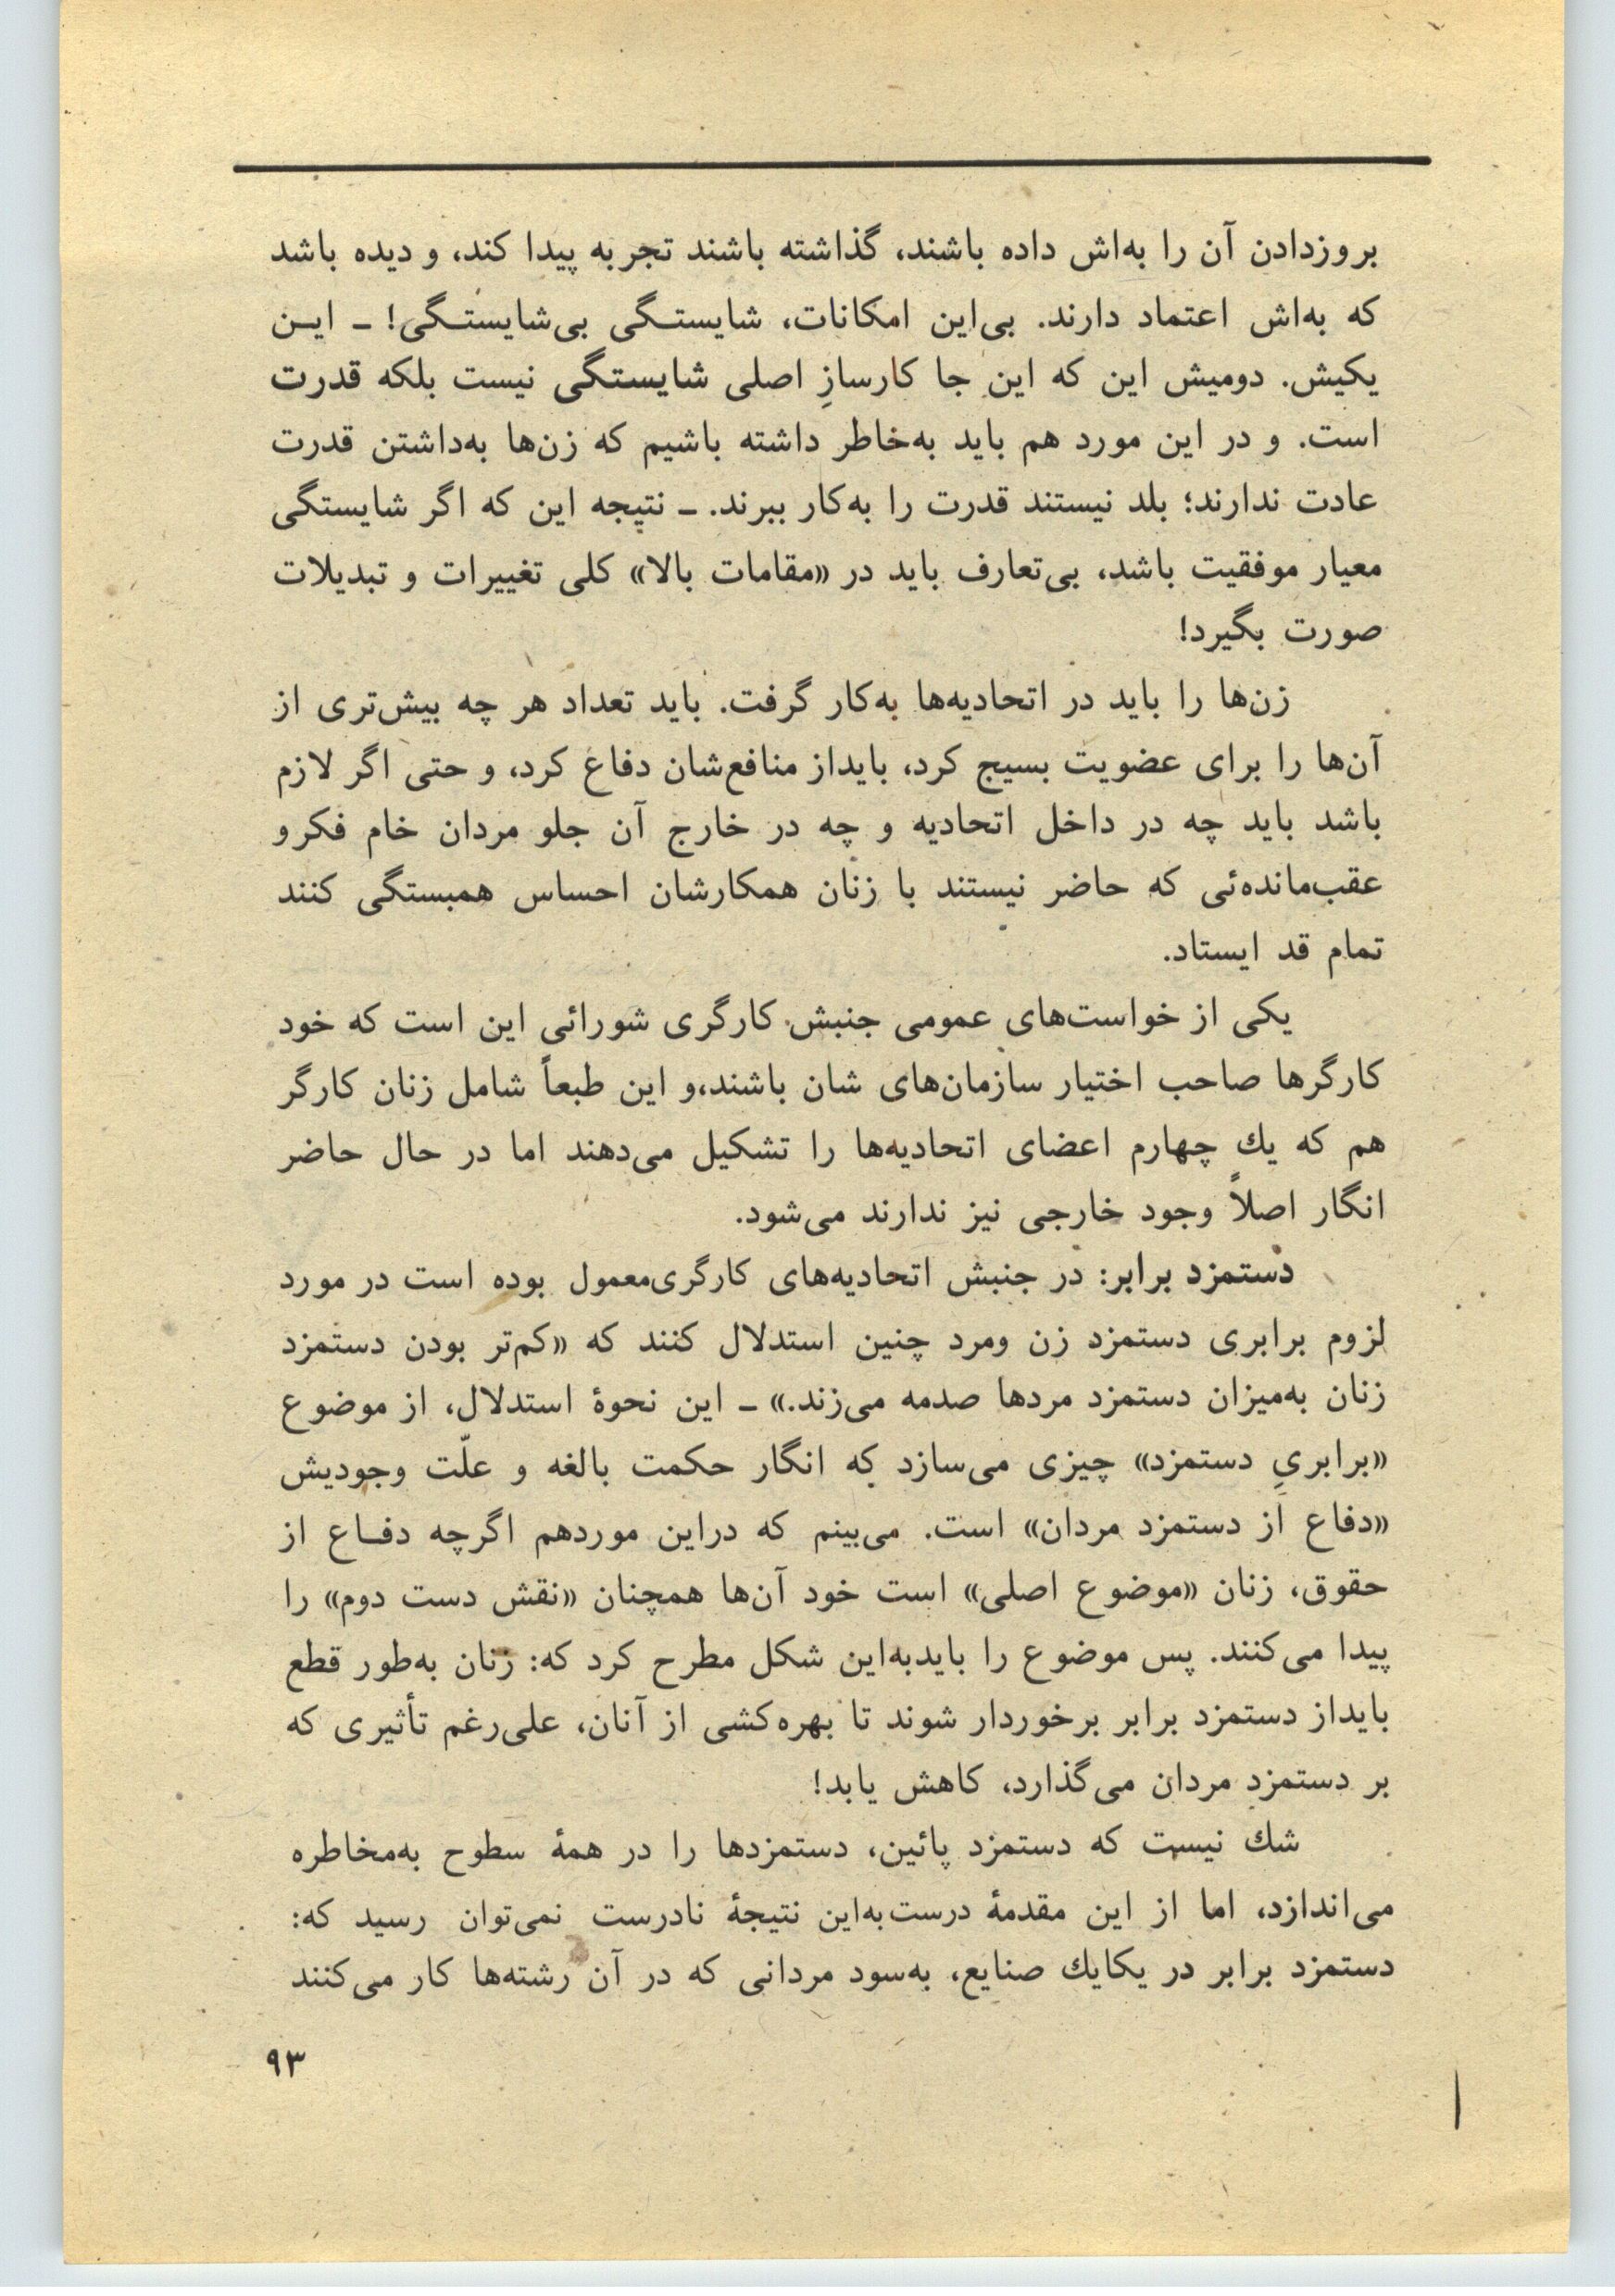 بروزدادن آن را به‌اش داده باشند، گذاشته باشند تجربه پیدا کند، و دیده باشد
که به‌اش اعتماد دارند. بی‌این امکانات، شایستـگی بی‌شایستـگی! ـ ایـن
یکیش. دومیش این که این جا کارسازِ اصلی شایستگی نیست بلکه قدرت
است. و در این مورد هم باید به‌خاطر داشته باشیم که زن‌ها به‌داشتن قدرت
عادت ندارند؛ بلد نیستند قدرت را به‌کار ببرند. ـ نتیجه این که اگر شایستگی
معیار موفقیت باشد، بی‌تعارف باید در «مقامات بالا» کلی تغییرات و تبدیلات
صورت بگیرد!
زن‌ها را باید در اتحادیه‌ها به‌کار گرفت. باید تعداد هر چه بیش‌تری از
آن‌ها را برای عضویت بسیج کرد، بایداز منافع‌شان دفاع کرد، و حتی اگر لازم
باشد باید چه در داخل اتحادیه و چه در خارج آن جلو مردان خام فکرو
عقب‌مانده‌ئی که حاضر نیستند با زنان همکارشان احساس همبستگی کنند
تمام قد ایستاد.
یکی از خواست‌های عمومی جنبش کارگری شورائی این است که خود
کارگرها صاحب اختیار سازمان‌های شان باشند،و این طبعاً شامل زنان کارگر
هم که یك چهارم اعضای اتحادیه‌ها را تشکیل می‌دهند اما در حال حاضر
انگار اصلاً وجود خارجی نیز ندارند می‌شود.
دستمزد برابر: در جنبش اتحادیه‌های کارگری‌معمول بوده است در مورد
لزوم برابری دستمزد زن ومرد چنین استدلال کنند که «کم‌تر بودن دستمزد
زنان به‌میزان دستمزد مردها صدمه می‌زند.» ـ این نحوهٔ استدلال، از موضوع
«برابریِ دستمزد» چیزی می‌سازد که انگار حکمت بالغه و علّت وجودیش
«دفاع از دستمزد مردان» است. می‌بینم که دراین موردهم اگرچه دفـاع از
حقوق، زنان «موضوع اصلی» است خود آن‌ها همچنان «نقش دست دوم» را
پیدا می‌کنند. پس موضوع را بایدبه‌این شکل مطرح کرد که: زنان به‌طور قطع
بایداز دستمزد برابر برخوردار شوند تا بهره‌کشی از آنان، علی‌رغم تأثیری که
بر دستمزد مردان می‌گذارد، کاهش یابد!
شك نیست که دستمزد پائین، دستمزدها را در همهٔ سطوح به‌مخاطره
می‌اندازد، اما از این مقدمهٔ درست‌به‌این نتیجهٔ نادرست نمی‌توان رسید که:
دستمزد برابر در یکایك صنایع، به‌سود مردانی که در آن رشته‌ها کار می‌کنند
۹۳